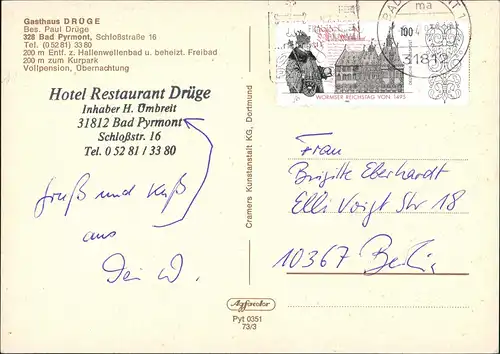 Gasthaus DRÜGE
Bes. Paul Drüge
328 Bad Pyrmont, Schloßstraße 16
Tel. (0 52 81) 33 80
200 m Entf. z. Hallenwellenbad u. beheizt. Freibad
200 m zum Kurpark
Vollpension, Übernachtung
Hotel Restaurant Drüge
Inhaber H. Umbreit
31812 Bad Pyrmont
Schloßstr. 16
Tel. 0 52 81 / 33 80
Gruß und Kuß
aus
Dein W.
Cramers Kunstanstalt KG, Dortmund
100
BAD
MONT 1
ma
31812
WORMSER REICHSTAG VON 1495
Frau
Brigitte Eberhardt
Elli Voigt Str 18
10367 Berlin
Agfacolor
Pyt 0351
73/3